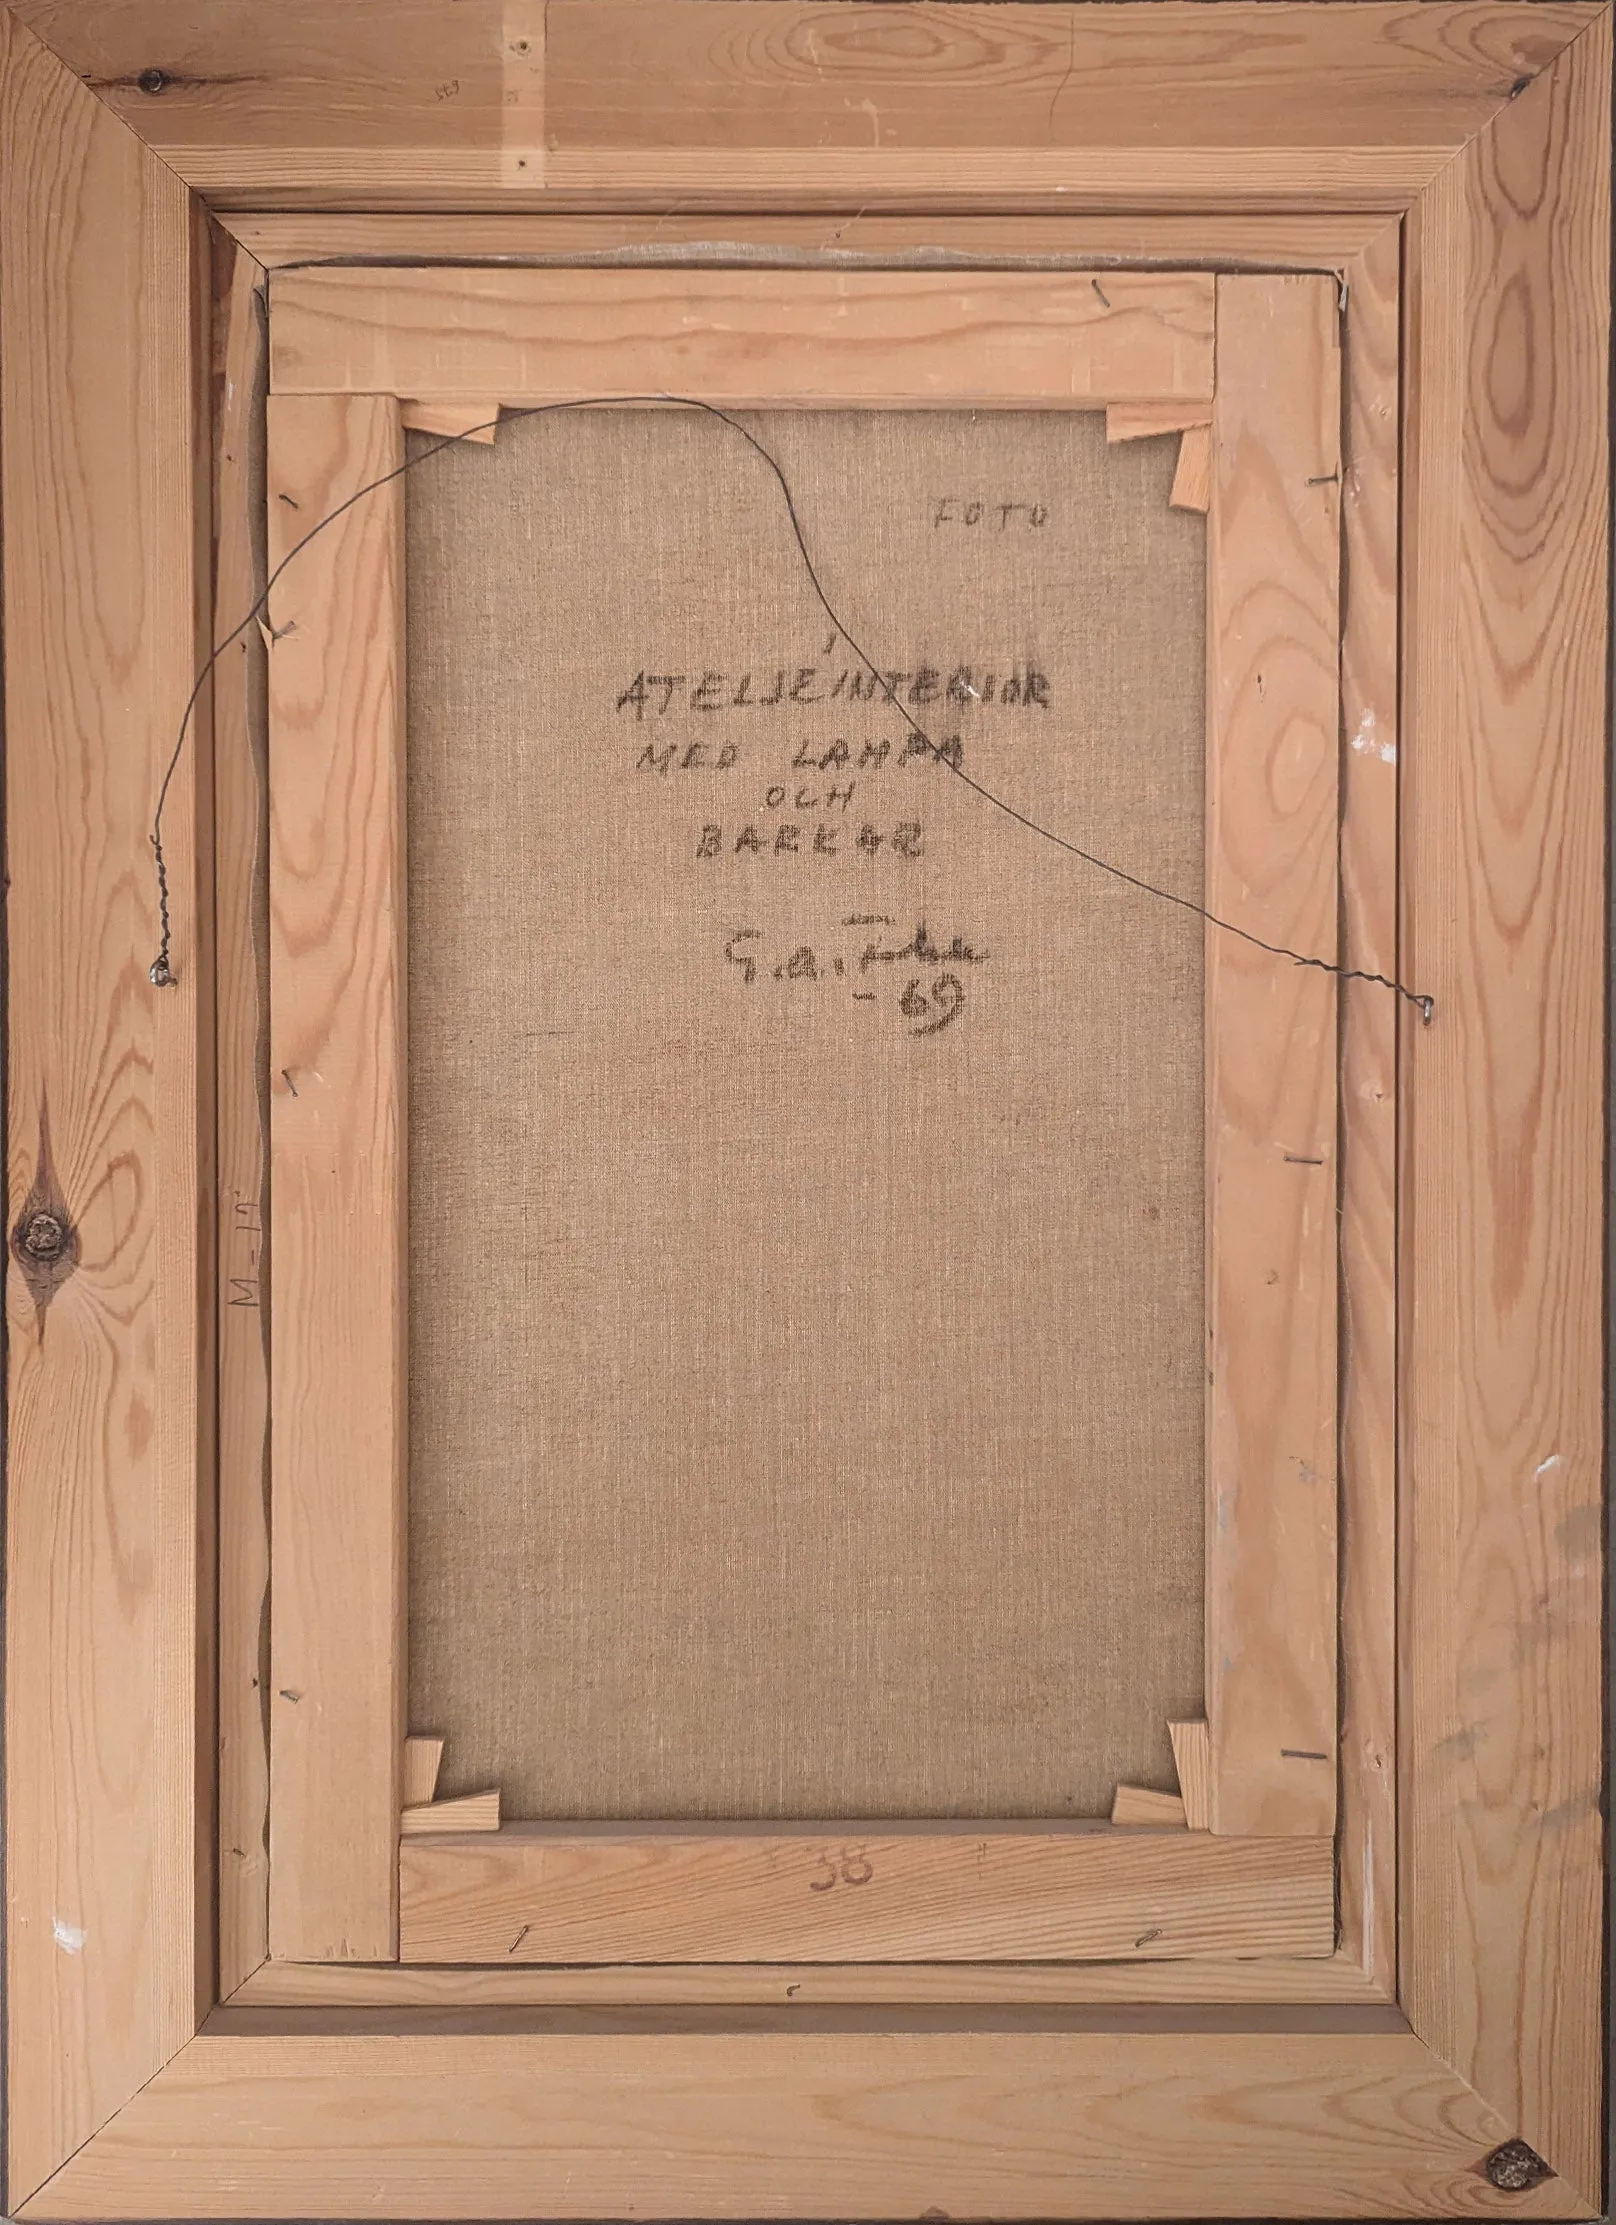 FOTO
ATELJÉINTERIÖR
MED LAMPA
OCH
BARKAR
G.A.
-69
M-17
38